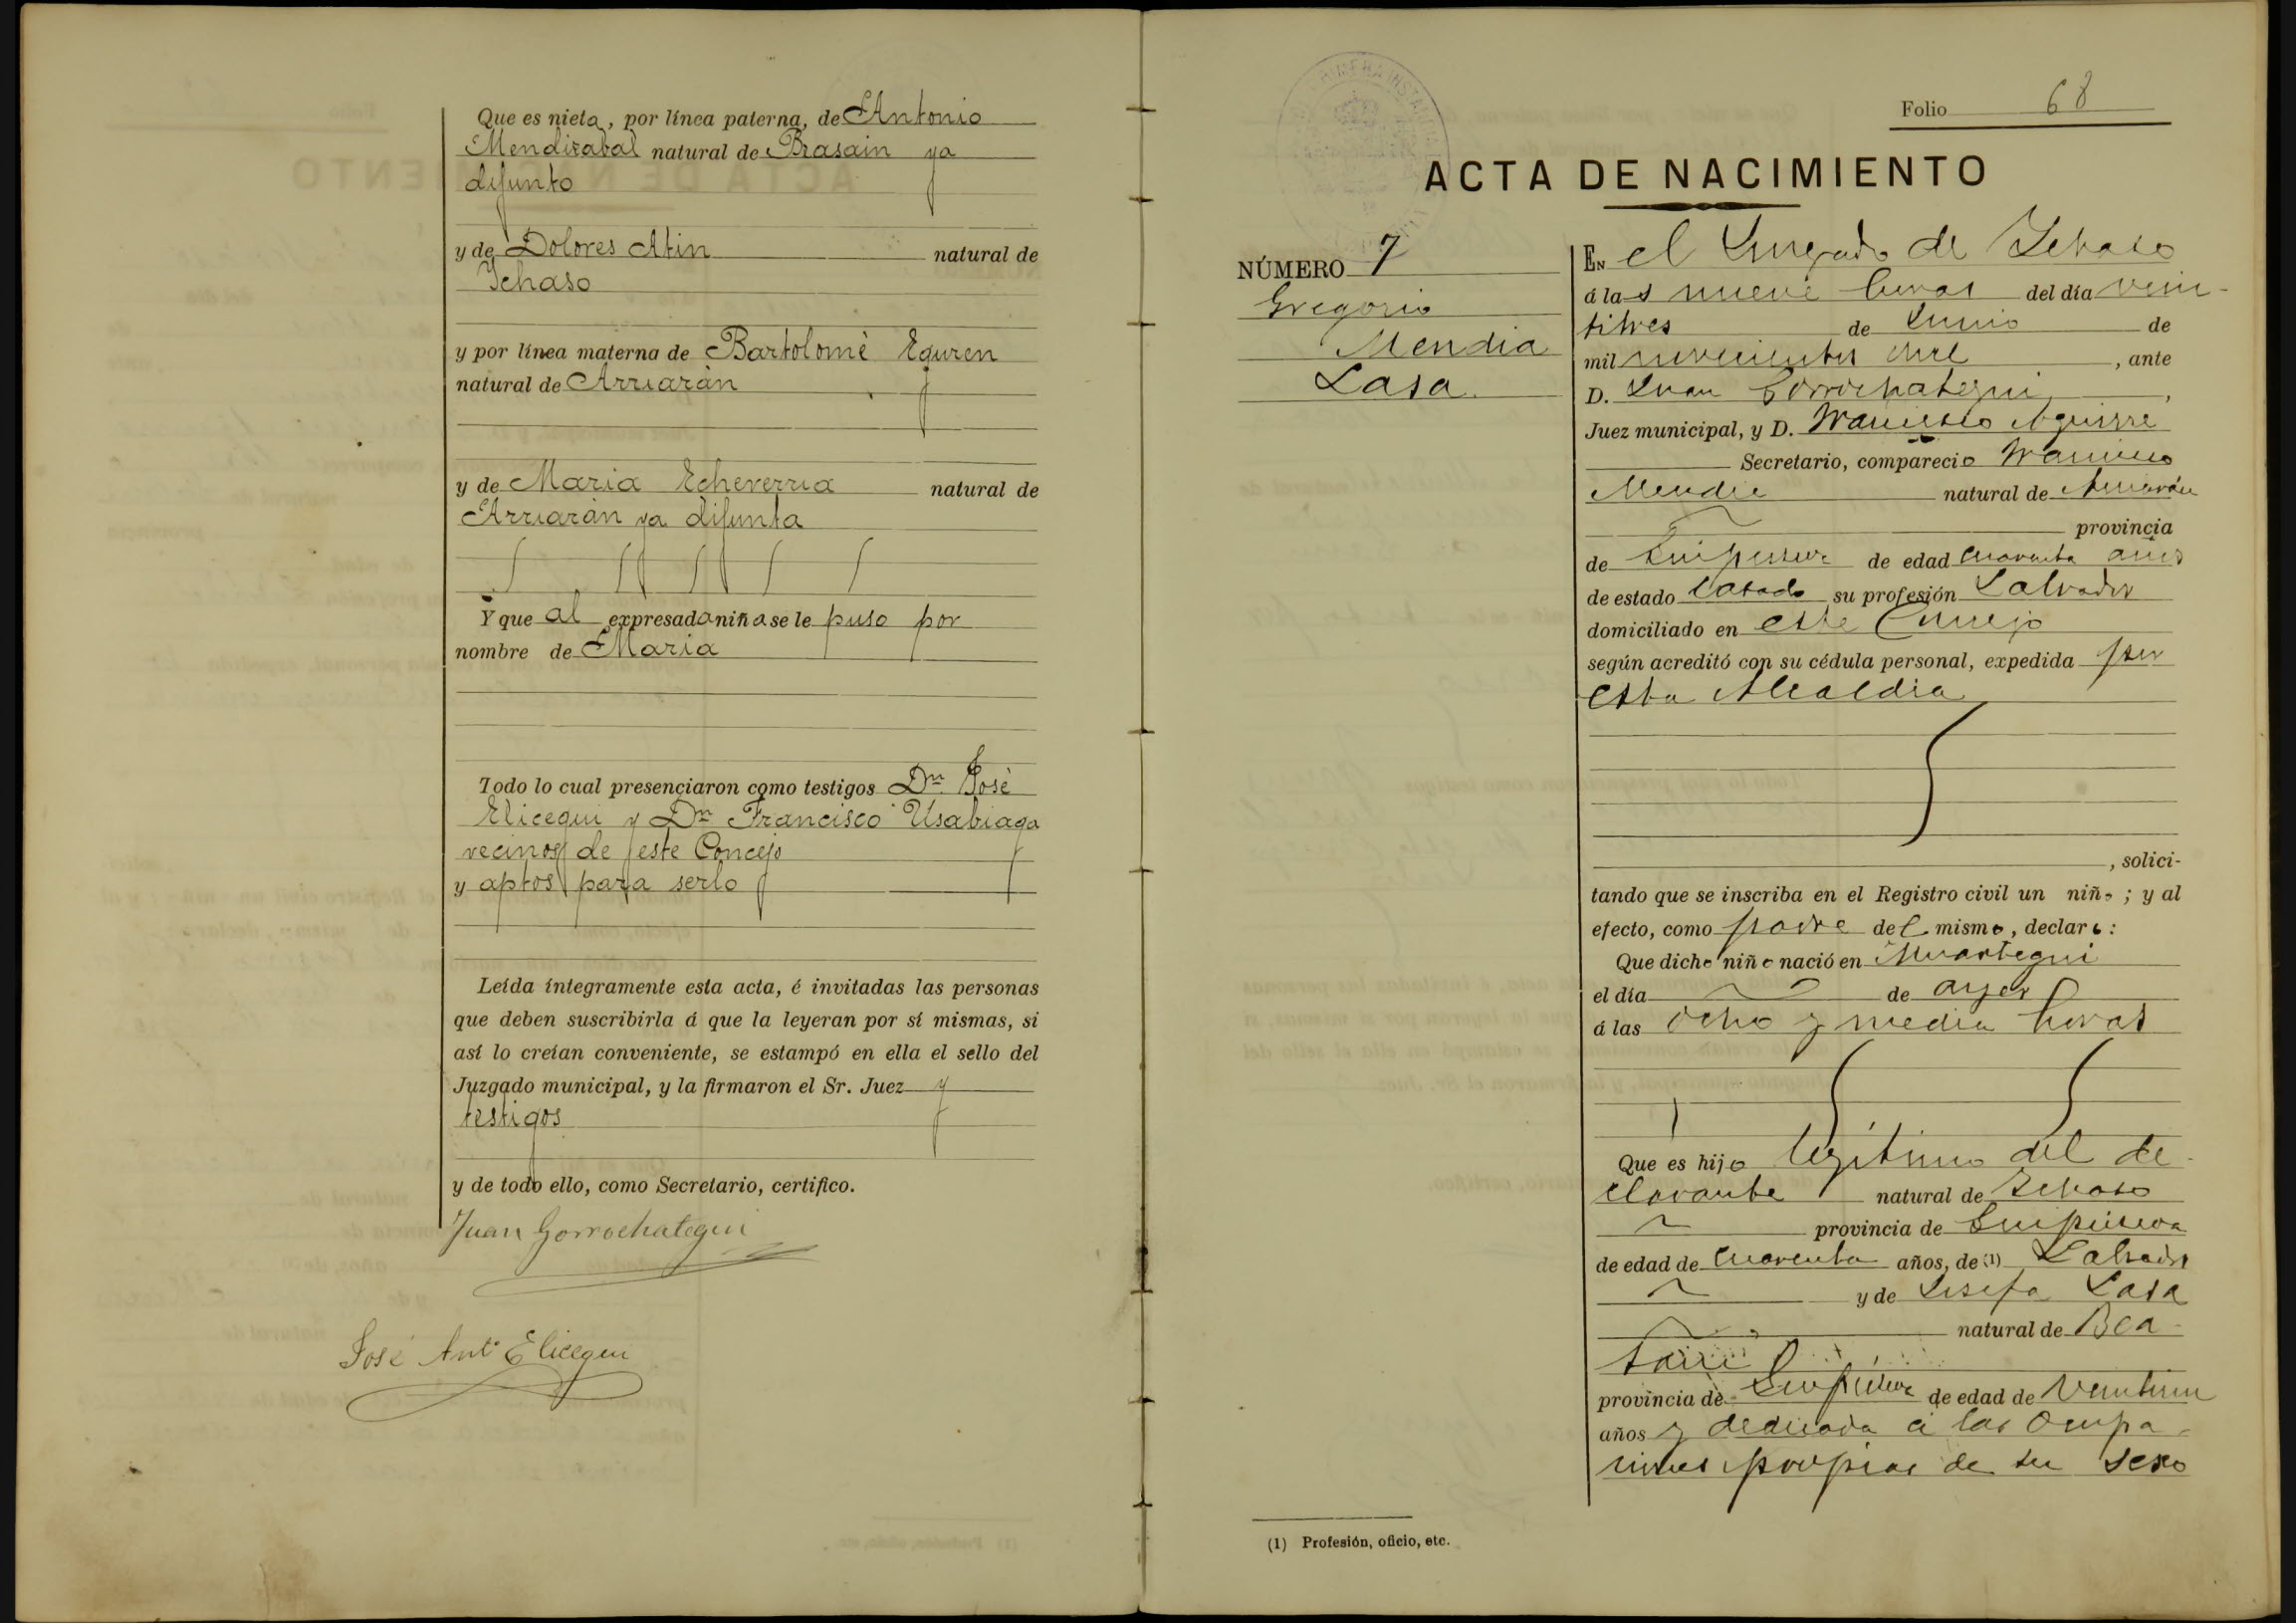 Que es nieta, por línea paterna, de Antonio
Mendizabal natural de Brasain ya
difunto
y de Dolores Atin natural de
Ichaso
y por línea materna de Bartolomé Eguren
natural de Arriarán
y de Maria Echeverria natural de
Arriarán ya difunta
Y que al expresada niña se le puso por
nombre de Maria
Todo lo cual presenciaron como testigos Dn José
Elicegui y Dn Francisco Usabiaga
vecinos de este Concejo
y aptos para serlo
Leída íntegramente esta acta, é invitadas las personas
que deben suscribirla á que la leyeran por sí mismas, si
así lo creían conveniente, se estampó en ella el sello del
Juzgado municipal, y la firmaron el Sr. Juez y
testigos
y de todo ello, como Secretario, certifico.
Juan Gorrochategui
José Anto Elicegui
Folio 68
ACTA DE NACIMIENTO
NÚMERO 7
Gregorio
Mendia
Lasa.
EN el Jurgado de Ichaso
á las nueve horas del día vein-
titres de Junio de
mil novecientos once, ante
D. Juan Gorrochategui,
Juez municipal, y D. Francisco Aguirre
Secretario, compareció Francisco
Mendia natural de Arriarán
provincia
de Guipuzcoa de edad cuarenta años
de estado casado su profesión Labrador
domiciliado en este Concejo
según acreditó con su cédula personal, expedida por
esta Alcaldia
, solici-
tando que se inscriba en el Registro civil un niño; y al
efecto, como padre del mismo, declaró:
Que dicho niño nació en
el día de ayer
á las ocho y media horas
Que es hijo legítimo del de-
clarante natural de Ichaso
provincia de Guipúzcoa
de edad de cuarenta años, de (1) Labrador
y de Josefa Lasa
natural de Bea-
sain
provincia de Guipúzcoa de edad de
años y dedicada á las ocupa-
ciones propias de su sexo
(1) Profesión, oficio, etc.